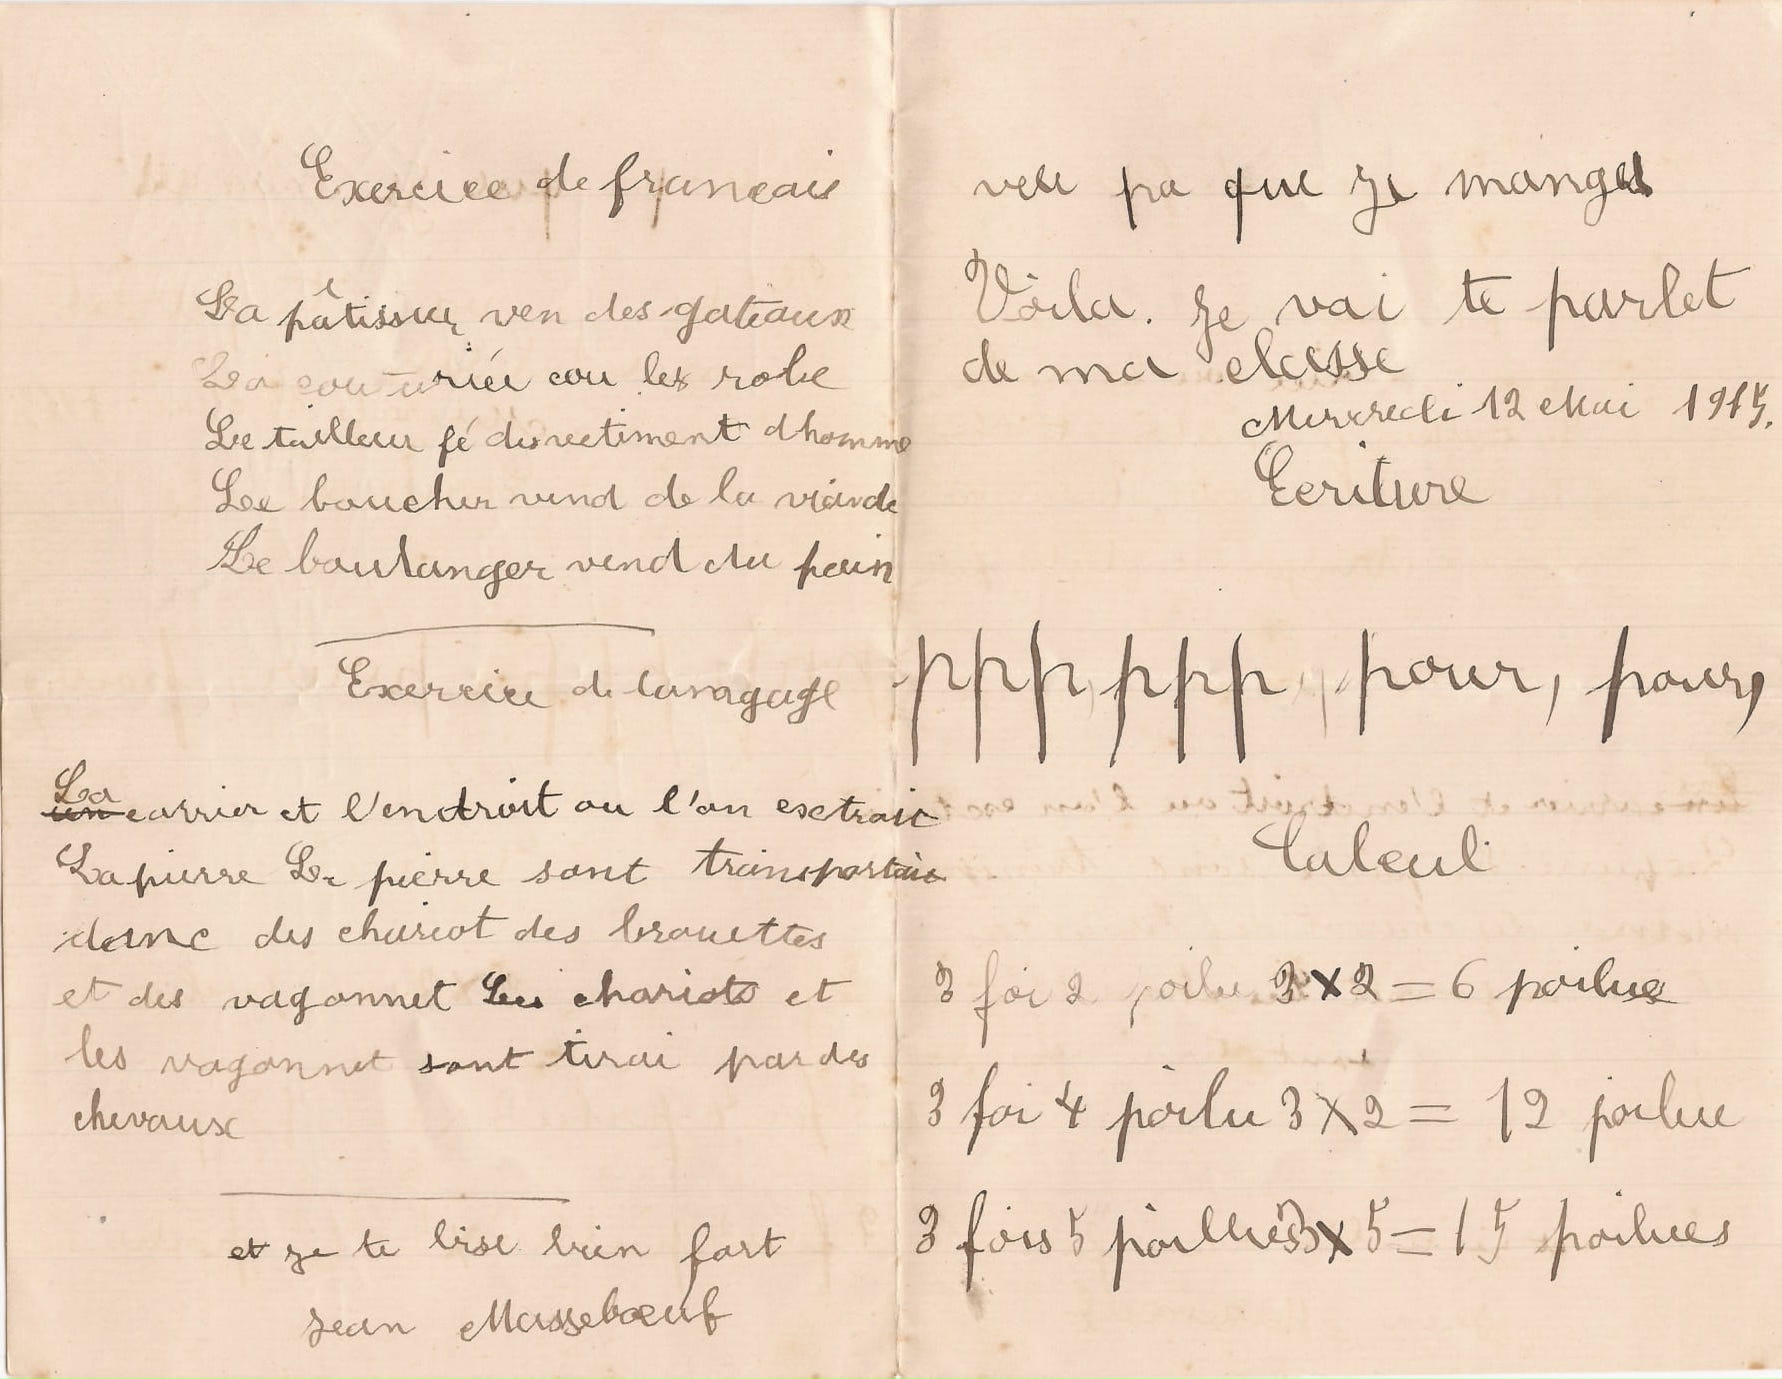 Exercice de francais
La pâtissur ven des gateaux
La couturiéu cou les robe
Le tailleur fé des vetiment dhomme
Le boucher vend de la viande
Le boulanger vend du pain
Exercice de langage
La
un carrier et l'endroit ou l'on exctrait
La pierre Le pierre sont transportaie
danc des chariot des brouettes
et des vagonnet Les chariots et
les vagonnet sont tirai par des
chevaux
et je te bise bien fort
Jean Massebœuf
veu pa que je manges
Voila. je vai te parlet
de ma classe
Mercredi 12 Mai 1915.
Ecriture
ppp, ppp, pour, pour,
Calcul
3 foi 2 poilu 3 x 2 = 6 poilus
3 foi 4 poilu 3 x 2 = 12 poilue
3 fois 5 poilues 3 x 5 = 15 poilues